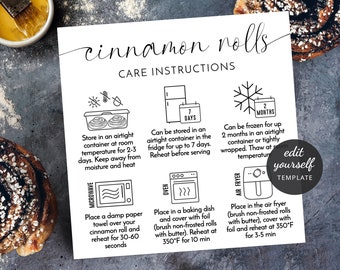 cinnamon rolls
CARE INSTRUCTIONS
7
DAYS
2
MONTHS
Store in an airtight
container at room
temperature for 2-3
days. Keep away from
moisture and heat
Can be stored in
an airtight
container in the
fridge for up to 7 days.
Reheat before serving
Can be frozen for up
2 months in an airtight
container or tightly
wrapped. Thaw at
temperature
edit
yourself
TEMPLATE
MICROWAVE
OVEN
AIR FRYER
Place a damp paper
towel over your
cinnamon roll and
reheat for 30-60
seconds
Place in a baking dish
and cover with foil
(brush non-frosted rolls
with butter). Reheat at
350°F for 10 min
Place in the air fryer
(brush non-frosted rolls
with butter), cover with
foil and reheat at 350°F
for 3-5 min